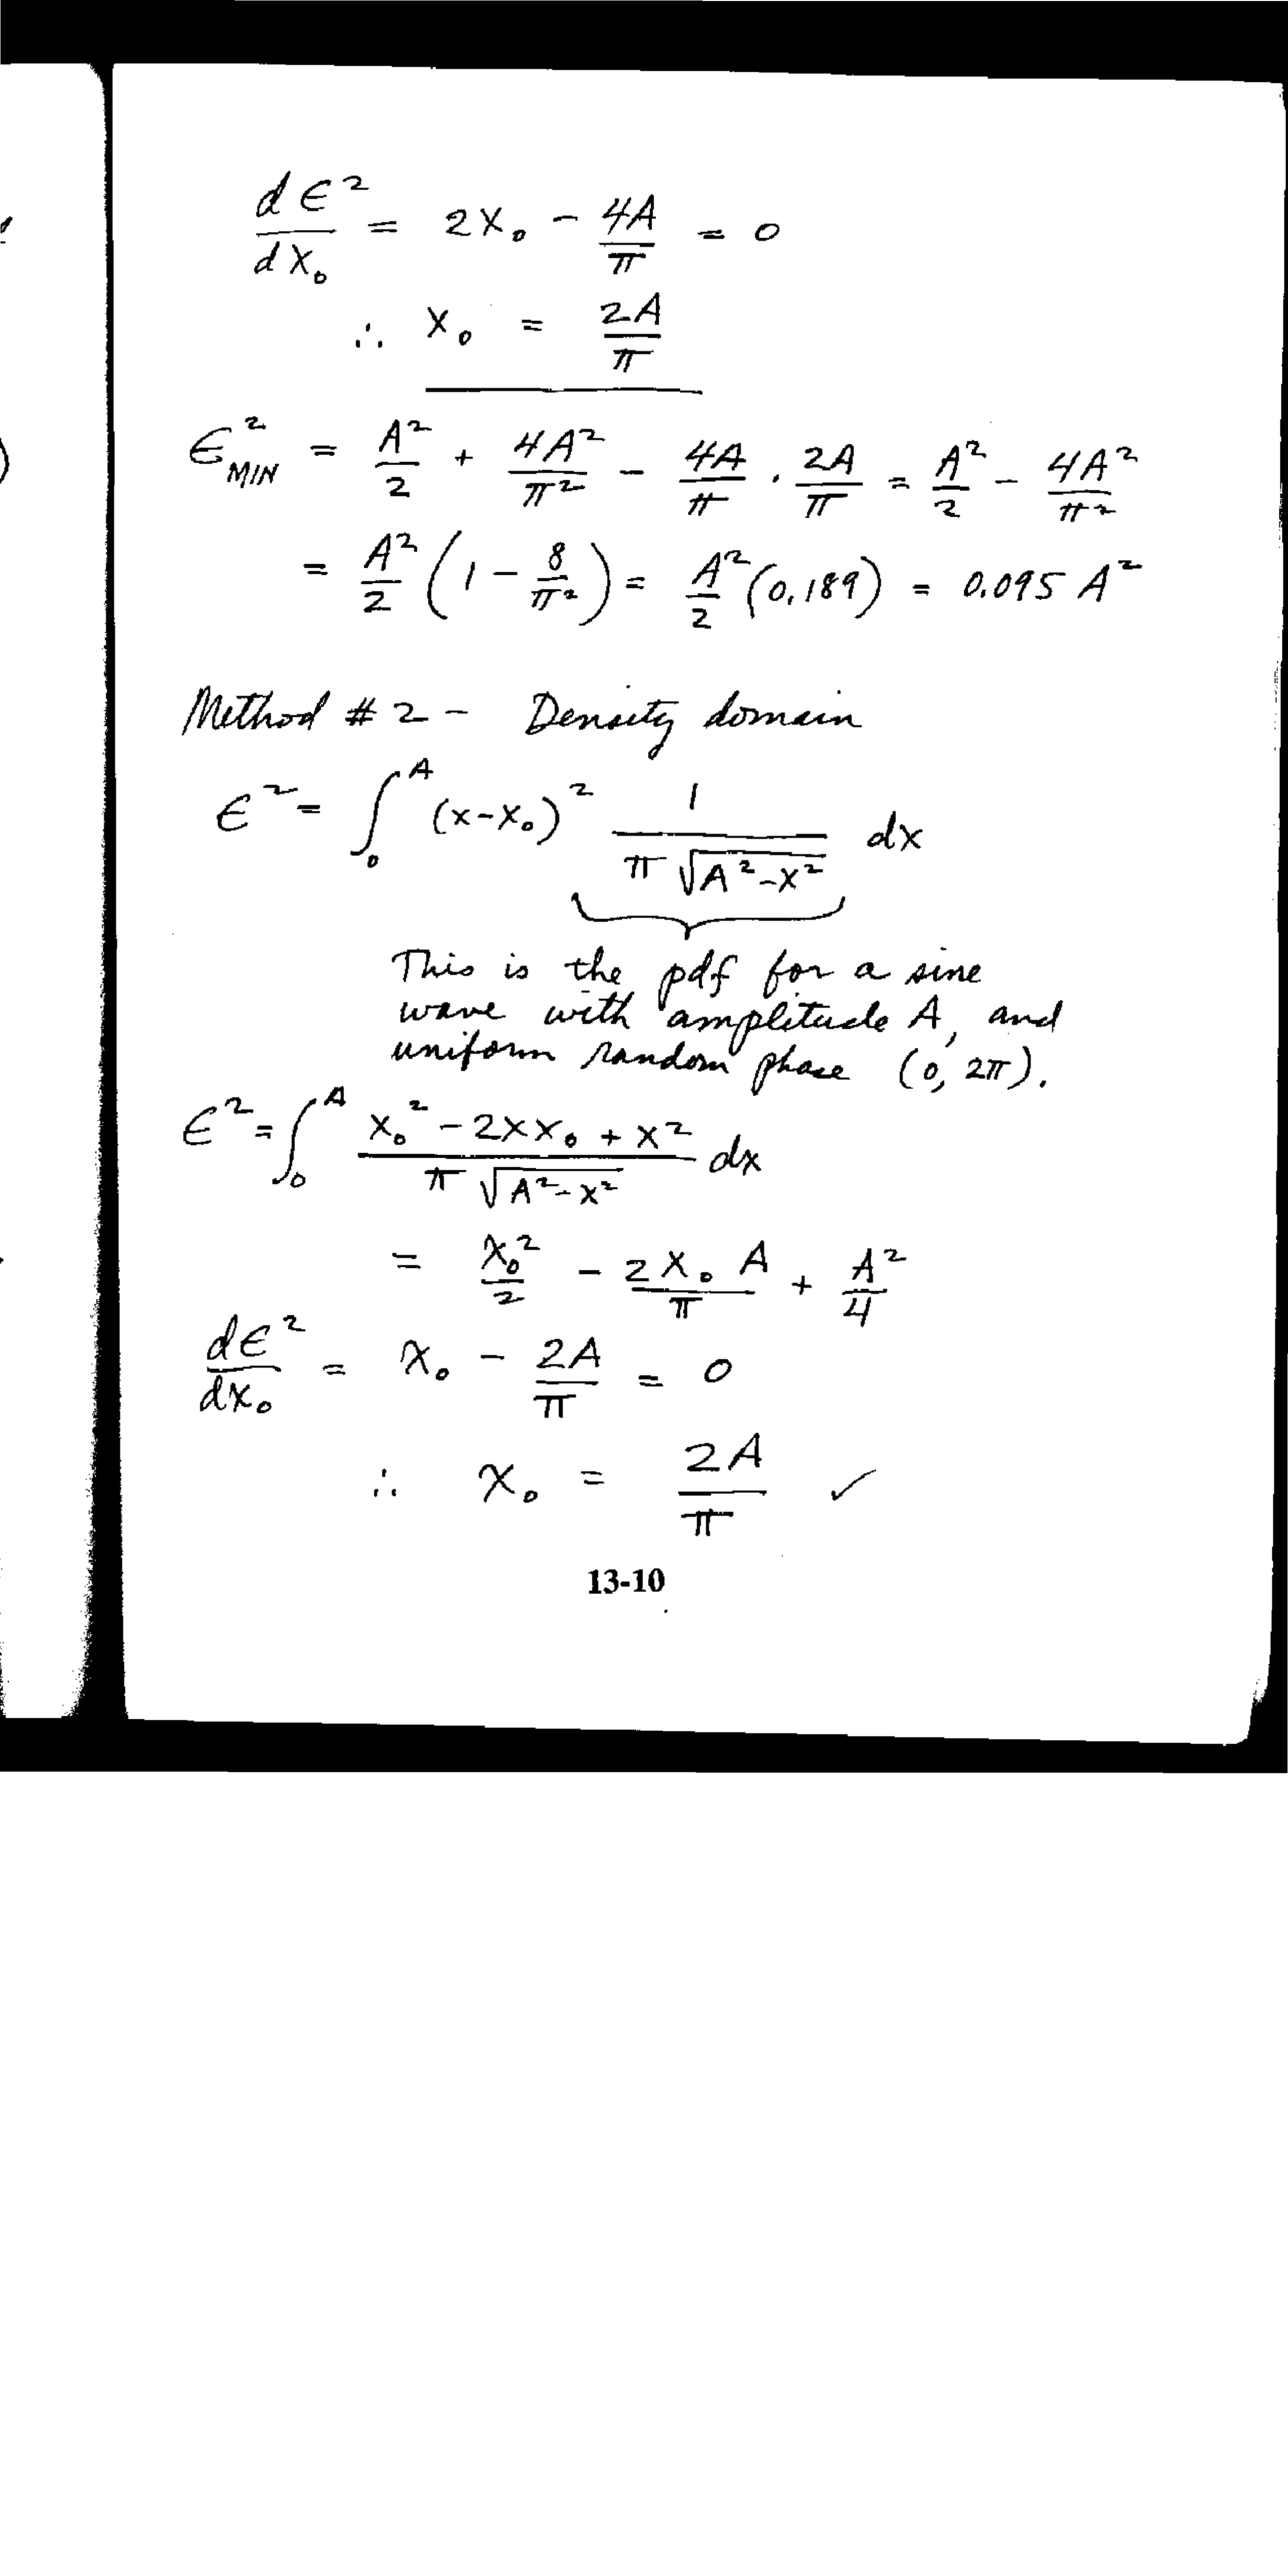 dϵ²/dX₀ = 2X₀ - 4A/π = 0
∴ X₀ = 2A/π
ϵ²_MIN = A²/2 + 4A²/π² - 4A/π · 2A/π = A²/2 - 4A²/π²
= A²/2 (1 - 8/π²) = A²/2 (0.189) = 0.095 A²
Method # 2 - Density domain
ϵ² = ∫₀^A (x-X₀)² 1/(π√(A²-x²)) dx
This is the pdf for a sine
wave with amplitude A, and
uniform random phase (0, 2π).
ϵ² = ∫₀^A (X₀² - 2XX₀ + X²)/(π√(A²-X²)) dx
= X₀²/2 - 2X₀A/π + A²/4
dϵ²/dX₀ = X₀ - 2A/π = 0
∴ X₀ = 2A/π ✓
13-10